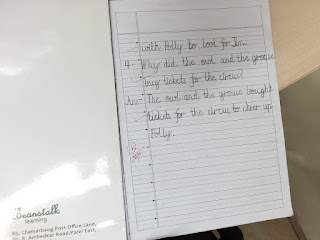 with Polly to look for Jim.
4. Why did the owl and the grouse
buy tickets for the circus?
Ans- The owl and the grouse bought
tickets for the circus to cheer up
Polly.
Beanstalk
learning
By, Lhamarbaug Post Office Lane,
Dr. B. Ambedkar Road, Parel East,